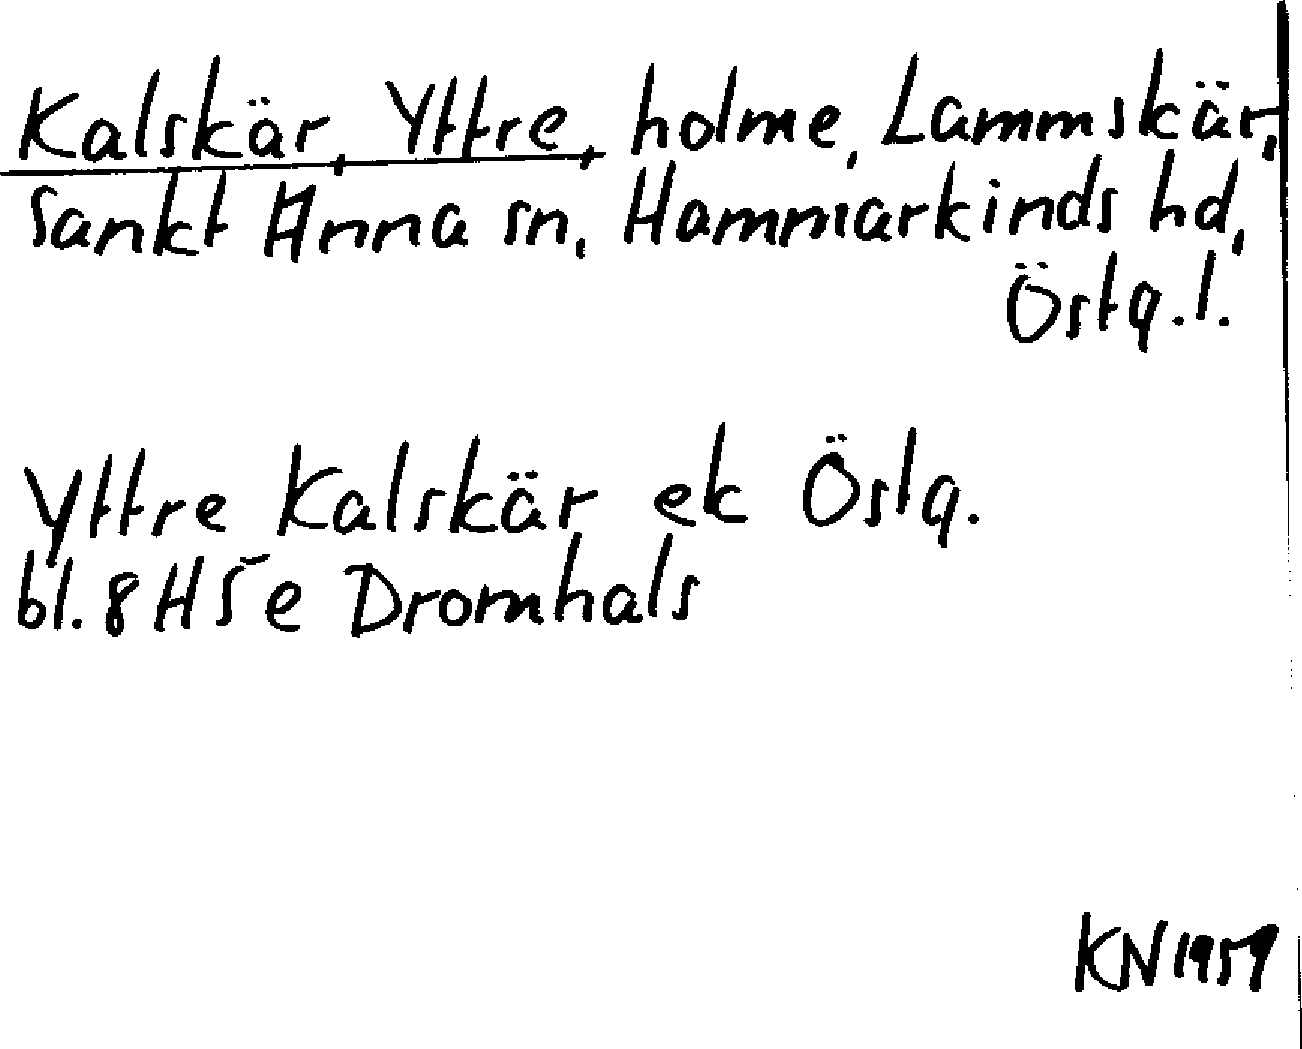 Kalskär, Yttre, holme, Lammskär,
Sankt Anna sn, Hammarkinds hd,
Östg.l.
Yttre Kalskär ek Östg.
bl. 8 H 5 e Dromhals
KN 1959